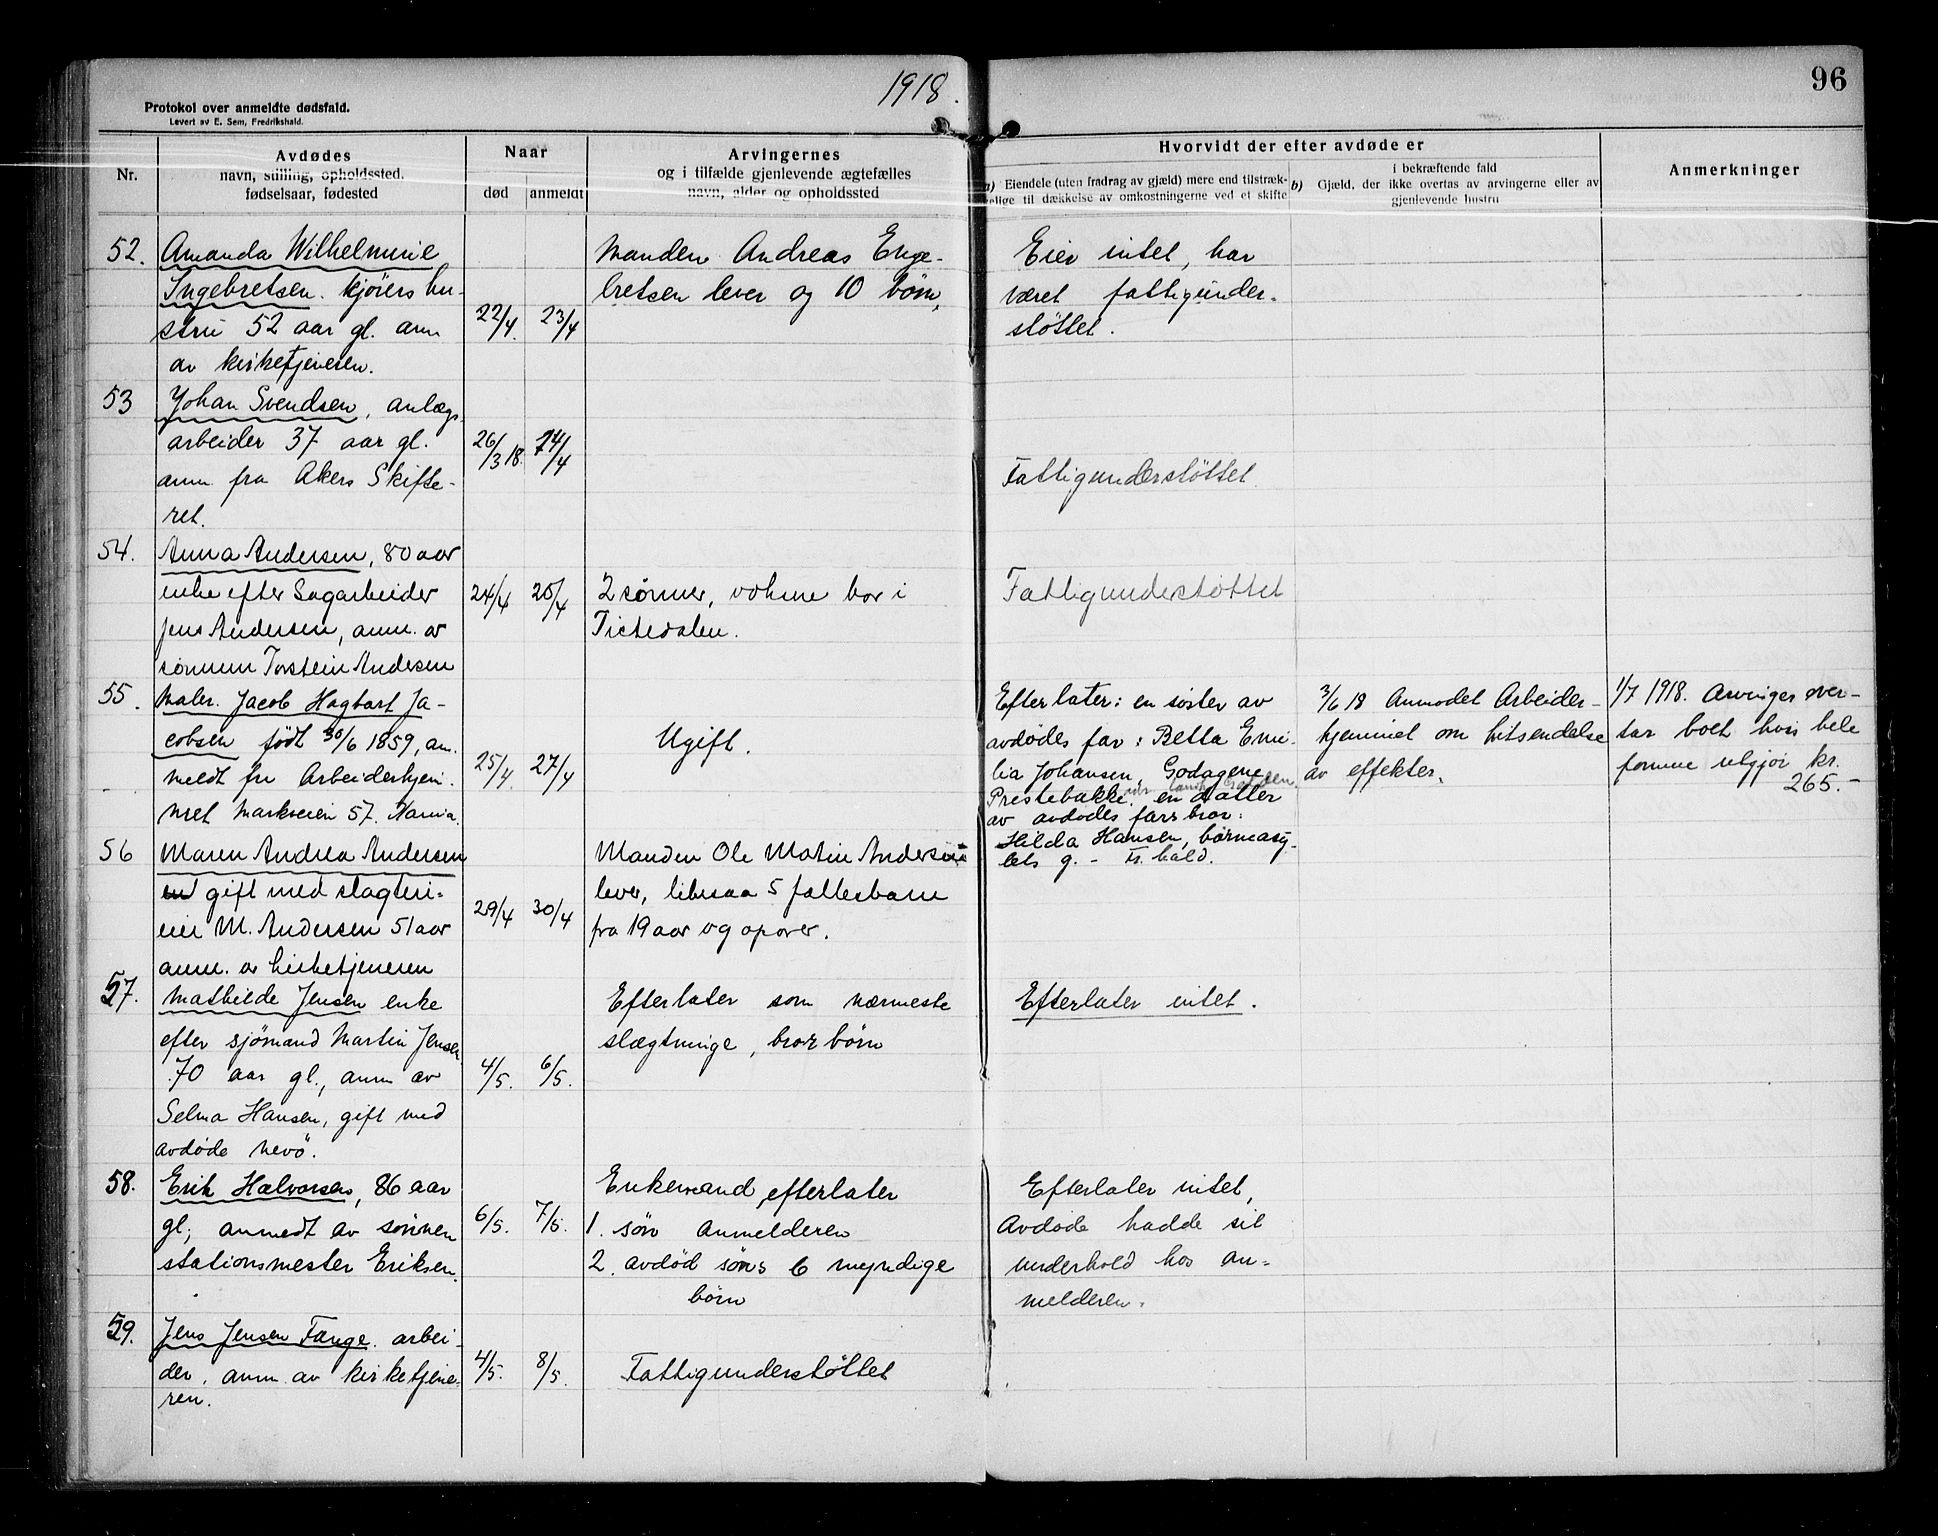 1918.
96
Protokol over anmeldte dødsfald.
Levert av E. Sem, Fredrikshald.
Nr.
Avdødes
navn, stilling, opholdssted.
fødselsaar, fødested
Naar
død
anmeldt
Arvingernes
og i tilfælde gjenlevende ægtefælles
navn, alder og opholdssted
Hvorvidt der efter avdøde er
a) Eiendele (uten fradrag av gjæld) mere end tilstræk-
kelige til dækkelse av omkostningerne ved et skifte
i bekræftende fald
b) Gjæld, der ikke overtas av arvingerne eller av
gjenlevende hustru
Anmerkninger
52.
Amanda Wilhelmine
Ingebretsen. kjøiers hu-
stru 52 aar gl. anm
av kirketjenesen.
22/4.
23/4
Manden Andreas Enge-
bretsen lever og 10 børn,
Eier intet, har
været fattigunder-
støttet.
53
Johan Svendsen, anlægs
arbeider 37 aar gl.
anm fra Akers Skifte-
ret.
26/3 18.
24/4
Fattigunderstøttet
54.
Anna Andersen, 80 aar
enke efter Sagarbeider
Jens Andersen, anm. av
sønnen Torstein Andersen
24/4
25/4
2 sønner, voksne bor i
Tistedalen.
Fattigunderstøttet
55.
Maler. Jacob Hagbart Ja-
cobsen født 30/6 1859, an.
meldt fra Arbeiderhjem.
met Markveien 57. Kania.
25/4.
27/4
Ugift.
Efterlater: en søster av
avdødes far: Betta Emi-
lia Johansen, Godagene
Prestebakke. en datter
av avdødes fars bror:
Hilda Hansen, børneasy-
lets g. - Fr.hald.
3/6 18 Anmodet Arbeider-
hjemmet om hitsendelse
av effekter.
1/7 1918. Arvinger over-
tar boet hvis hele
formue utgjør kr.
265.-
56
Maren Andrea Andersen
gift med slagteri-
eier M. Andersen 51 aar
anm. av kirketjeneren
29/4
30/4
Manden Ole Martin Andersen
lever, likesaa 5 fællesbarn
fra 19 aar og opover.
57.
Mathilde Jensen enke
efter sjømand Martin Jensen
70 aar gl., anm av
Selma Hansen, gift med
avdøde nevö.
4/5.
6/5.
Efterlater som nærmeste
slægtninge, brorbørn
Efterlater intet.
58.
Erik Halvorsen, 86 aar
gl; anmedt av sønnen
stationsmester Eriksen.
6/5.
7/5.
Enkemand, efterlater
1. søn anmelderen
2. avdød søns 6 myndige
børn
Efterlater intet,
Avdøde hadde sit
underhold hos an-
melderen.
59.
Jens Jensen Fange. arbei-
der, anm. av kirketjene-
ren.
4/5.
8/5.
Fattigunderstøttet